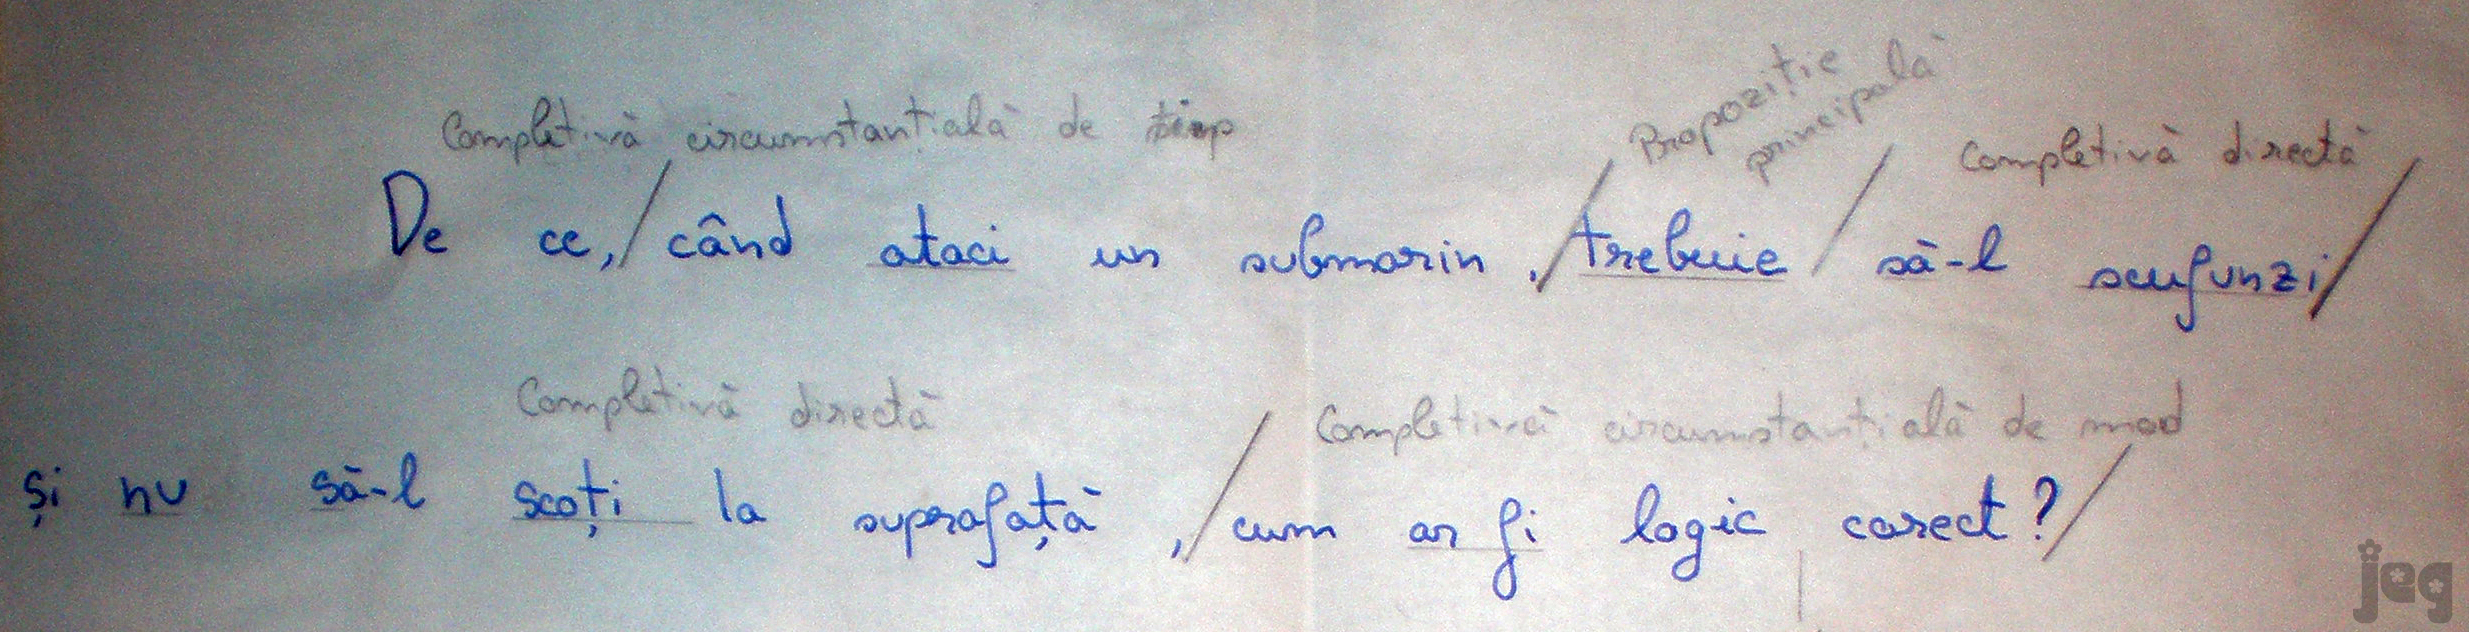 Completivă circumstanțială de timp
Propoziție
principală
Completivă directă
De ce,/ când ataci un submarin,/ trebuie / să-l scufunzi/
Completivă directă
Completivă circumstanțială de mod
și nu să-l scoți la suprafață,/ cum ar fi logic corect?/
jeg